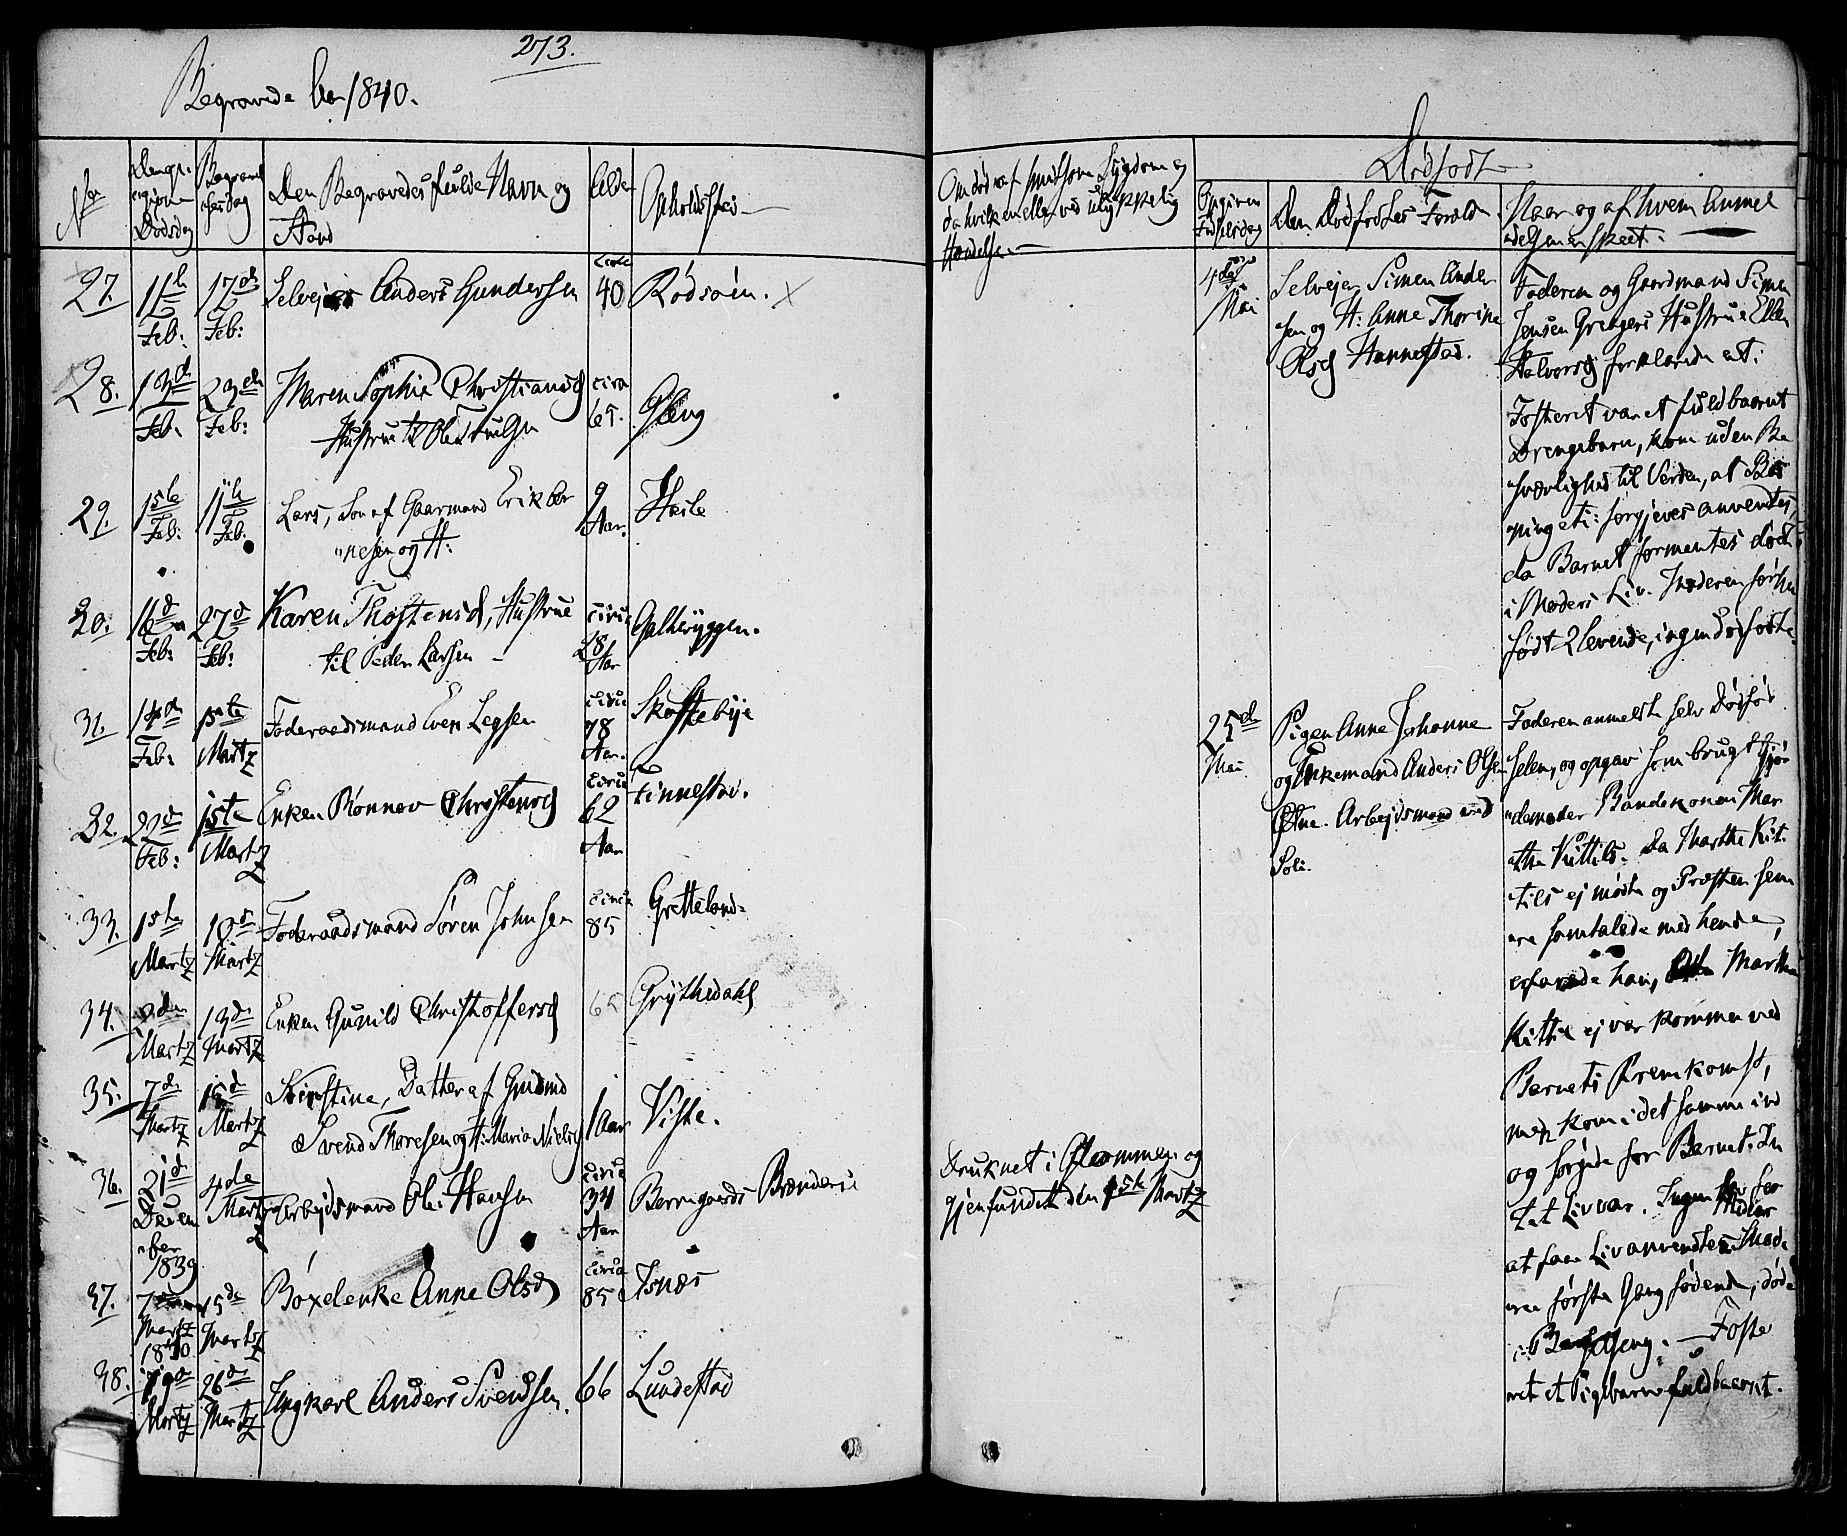 273.
Begravede 1840.
No
Dødsdag
Den Begravedes fulde Navn og
Stand
Alder
Opholdssted
27.
11te
Feb:
17de
Feb:
Selvejer Anders Gundersen
circa
40
Rødsøen.
28.
13de
Feb:
23de
Feb:
Maren Sophie Christiansd
Hustrue til Ole
circa
65.
Gleng
29.
1ste
Feb:
11te
Feb:
Lars, Søn af Gaarmand Erik Ber
nesen og H:
9
Aar.
Hasle
30.
16d
Feb:
27d
Feb:
Karen Thostensd, Hustrue
til Peder Larsen
circa
28
Aar
Galteryggen.
31.
14de
Feb:
1ste
Martz
Foderaadsmand Even
circa
78
Aar.
Skoftebye
32.
22d
Feb:
1ste
Martz
Enken Rønnev Christensd
circa
62
Aar
Finnestad.
33.
1ste
Martz
10d
Martz
Foderaadsmand Søren Johnsen
circa
85
Gretteland
34.
Martz
13de
Martz
Enken Gunild Christoffersd
65
Grythedahl
35.
7de
Martz
15d
Martz
Kirstine, Datter af Grdmd
Svend Thoresen og H: Maria Nielsd
1 Aar
Viste.
36.
21d
Decem
ber
1839
4de
Martz
Arbejdsmand Ole Hansen
circa
34
Aar
Berregaards Brænderie
37.
7
Martz
1840
15de
Martz
Anne Olsd
circa
85
Isnæs
38.
19de
Martz
26de
Martz
Ungkarl Anders Svendsen.
66
Lundestad
Om død af smitsom Sygdom og
da hvilken eller ved ulykkelig
Hændelse.
Druknet i Glommen og
gjenfundet den 1ste Martz
Dødfødt
Opgiven
Fødselsdag
Den Dødfødtes Forældr
Naar og af hvem anmel
delsen er skeet.
4de
Mai
Selvejer Simen Ander
sen og H: Anne Thorine
Olsd Hannestad.
Faderen og Gaardmand Simen
Jensen Hustrue Ellen
Halvorsd forklarede at:
Fosteret var et fuldbaaret
Drengebarn, kom uden Be
sværlighed til Verden, at
forgjeves anvendtes,
da Barnet formentes død
i Moders Liv. Moderen forhen
født 2 levende, ingen dødfødte.
25de
Mai
Pigen Anne Johanne
og Enkemand Anders Olsen
Arbejdsmand ved
Soli.
Faderen anmeldte selv Dødfød
selen, og opgav som brugt Gjor
demoder Bondekonen Mar
athe Kittils. Da Marthe Kit
tils ej mødte og Præsten sen
ere samtalede med hende,
erfarede han, Marthe
Kittil ej var kommen ved
Barnets Fremkomst,
men kom i det samme ind
og sørgede for Barnet. In
tet Liv var. Ingen Midler for
at faae Liv anvendtes. Mod
eren første Gang fødende, døde
i Barselseng. — Foste
ret et Pigebarn fuldbaaret.